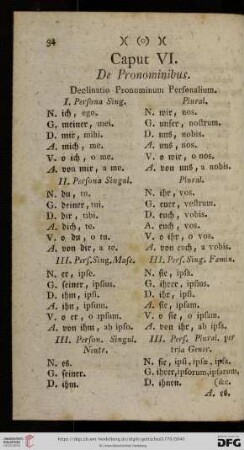 94 )( (o) )(
Caput VI.
De Pronominibus.
Declinatio Pronominum Personalium.
I. Persona Sing. Plural.
N. ich, ego. N. wir, nos.
G. meiner, mei. G. unser, nostrum.
D. mir, mihi. D. uns, nobis.
A. mich, me. A. uns, nos.
V. o ich, o me. V. o wir, o nos.
A. von mir, a me. A. von uns, a nobis.
II. Persona Singul. Plural.
N. du, tu. N. ihr, vos.
G. deiner, tui. G. euer, vestrum.
D. dir, tibi. D. euch, vobis.
A. dich, te. A. euch, vos.
V. o du, o tu. V. o ihr, o vos.
A. von dir, a te. A. von euch, a vobis.
III. Pers. Sing. Masc. III. Pers. Sing. Fæmin.
N. er, ipse. N. sie, ipsa.
G. seiner, ipsius. G. ihrer, ipsius.
D. ihm, ipsi. D. ihr, ipsi.
A. ihn, ipsum. A. sie, ipsam.
V. o er, o ipsum. V. o sie, o ipsam.
A. von ihm, ab ipso. A. von ihr, ab ipsa.
III. Person. Singul. III. Pers. Plural. per
Neutr. tria Gener.
N. es. N. sie, ipsi, ipsæ, ipsa.
G. seiner. G. ihrer, ipsorum, ipsarum,
D. ihm. D. ihnen. (&c.
A. es.
UNIVERSITÄTS-BIBLIOTHEK HEIDELBERG
DFG